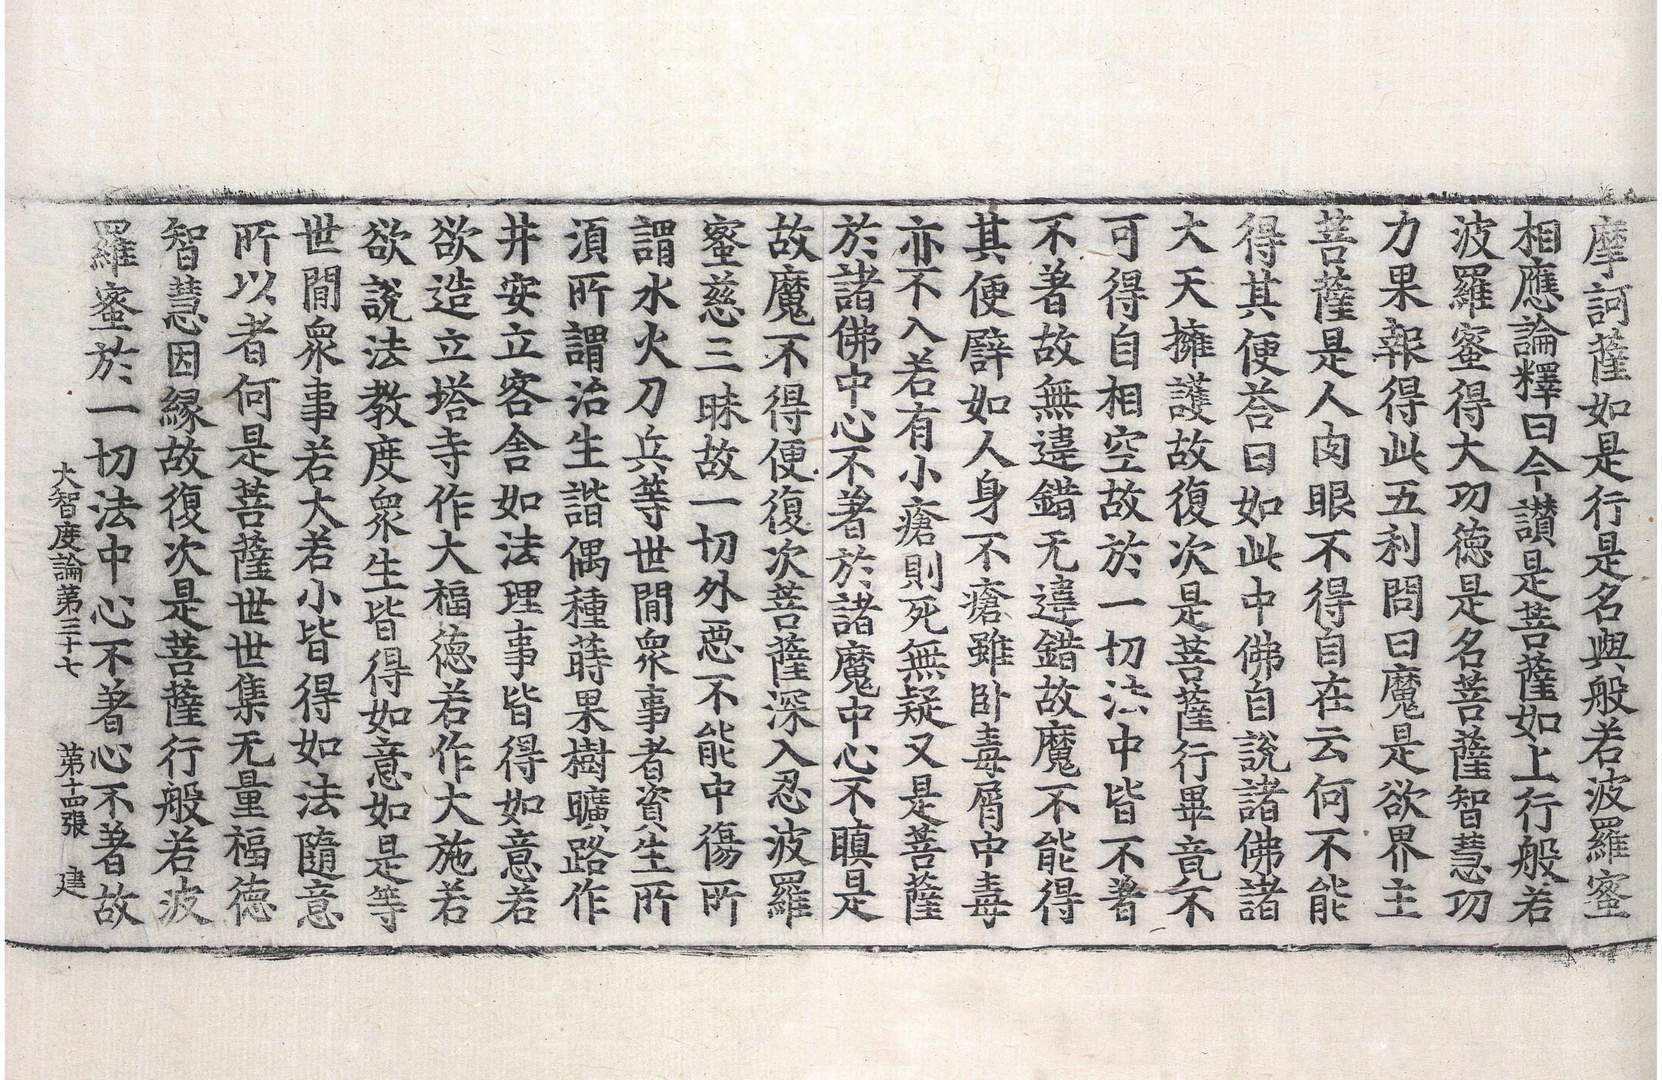 摩訶薩如是行是名與般若波羅蜜
相應論釋曰今讃是菩薩如上行般若
波羅蜜得大功德是名菩薩智慧功
力果報得此五利問曰魔是欲界主
菩薩是人肉眼不得自在云何不能
得其便荅曰如此中佛自說諸佛諸
大天擁護故復次是菩薩行畢竟不
可得自相空故於一切法中皆不著
不著故無違錯无違錯故魔不能得
其便譬如人身不瘡雖卧毒屑中毒
亦不入若有小瘡則死無疑又是菩薩
於諸佛中心不著於諸魔中心不瞋是
故魔不得便復次菩薩深入忍波羅
蜜慈三昧故一切外惡不能中傷所
謂水火刀兵等世閒衆事者資生所
須所謂治生諧偶種蒔果樹曠路作
井安立客舍如法理事皆得如意若
欲造立塔寺作大福德若作大施若
欲說法教度衆生皆得如意如是等
世閒衆事若大若小皆得如法隨意
所以者何是菩薩世世集无量福德
智慧因緣故復次是菩薩行般若波
羅蜜於一切法中心不著心不著故
大智度論第三十七 第十四張 建